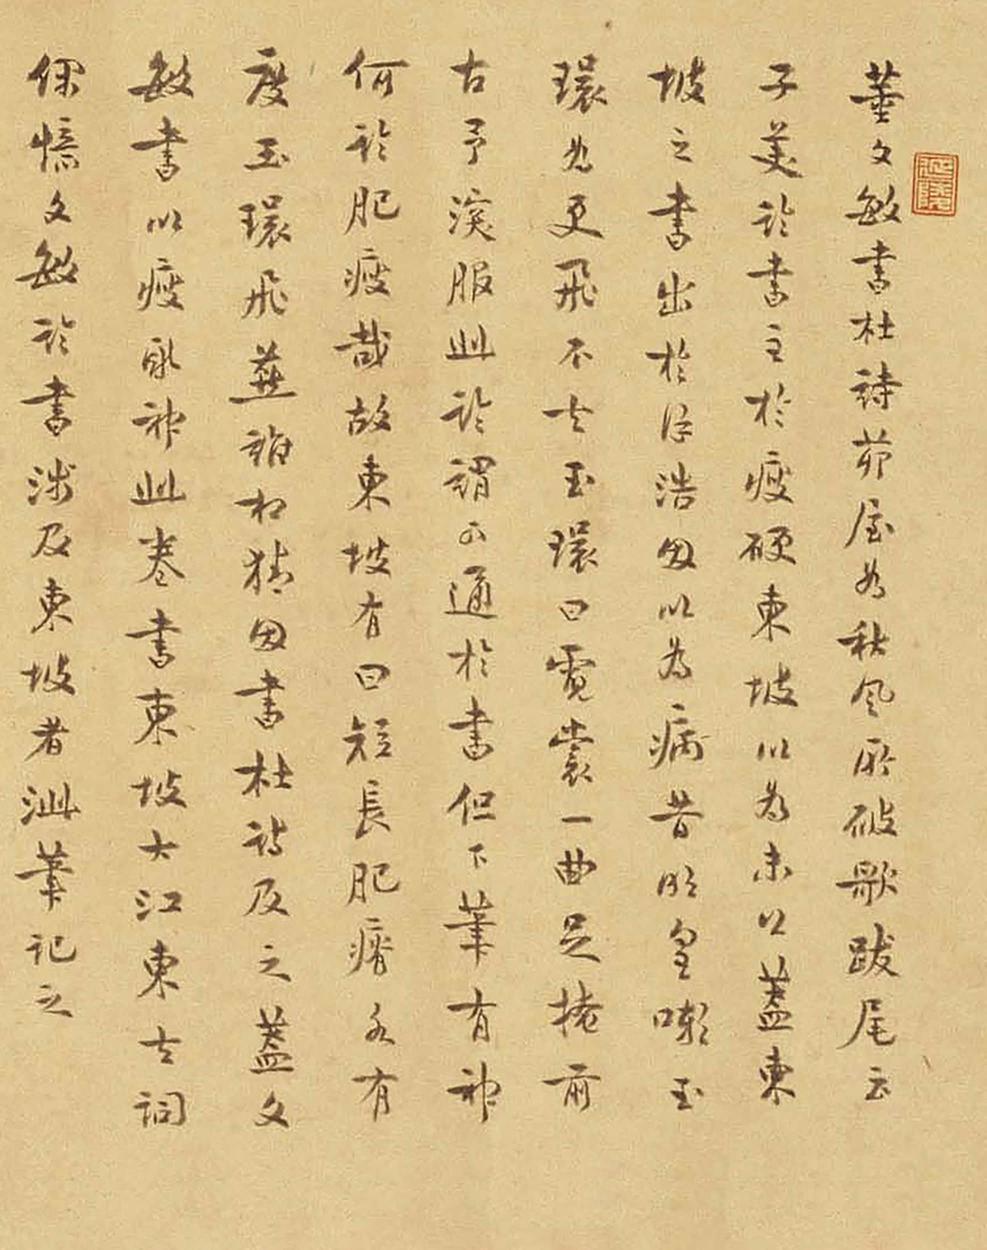 延陵
董文敏書杜詩茆屋為秋風所破歌跋尾云
子美論書主於瘦硬東坡以為未公蓋東
坡之書出於徐浩因以為病昔明皇嘲玉
環為更飛不去玉環曰霓裳一曲足掩前
古予深服此論謂可通於書但下筆有神
何論肥瘦哉故東坡有曰短長肥瘠各有
度玉環飛燕誰相猜因書杜詩及之蓋文
敏書以瘦取神此卷書東坡大江東去詞
偶憶文敏論書涉及東坡者泚筆記之